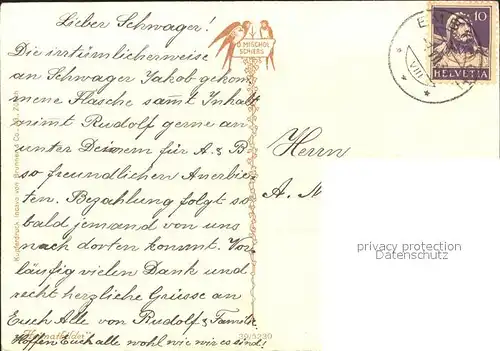 Lieber Schwager!
Die irrtümlicherweise
an Schwager Jakob gekom-
mene Flasche samt Inhalt
nimmt Rudolf gerne an
unter Deinem für A. & B
so freundlichen Anerbie-
ten. Bezahlung folgt so
bald jemand von uns
nach dorten kommt. Vor-
läufig vielen Dank und
recht herzliche Grüsse an
Euch Alle von Rudolf & Familie
Hoffen Euch alle wohl wie wir es sind!
D. MISCHOL
SCHIERS
10
HELVETIA
VIII
Herrn
A. M
privacy protection
Datenschutz
39/5230